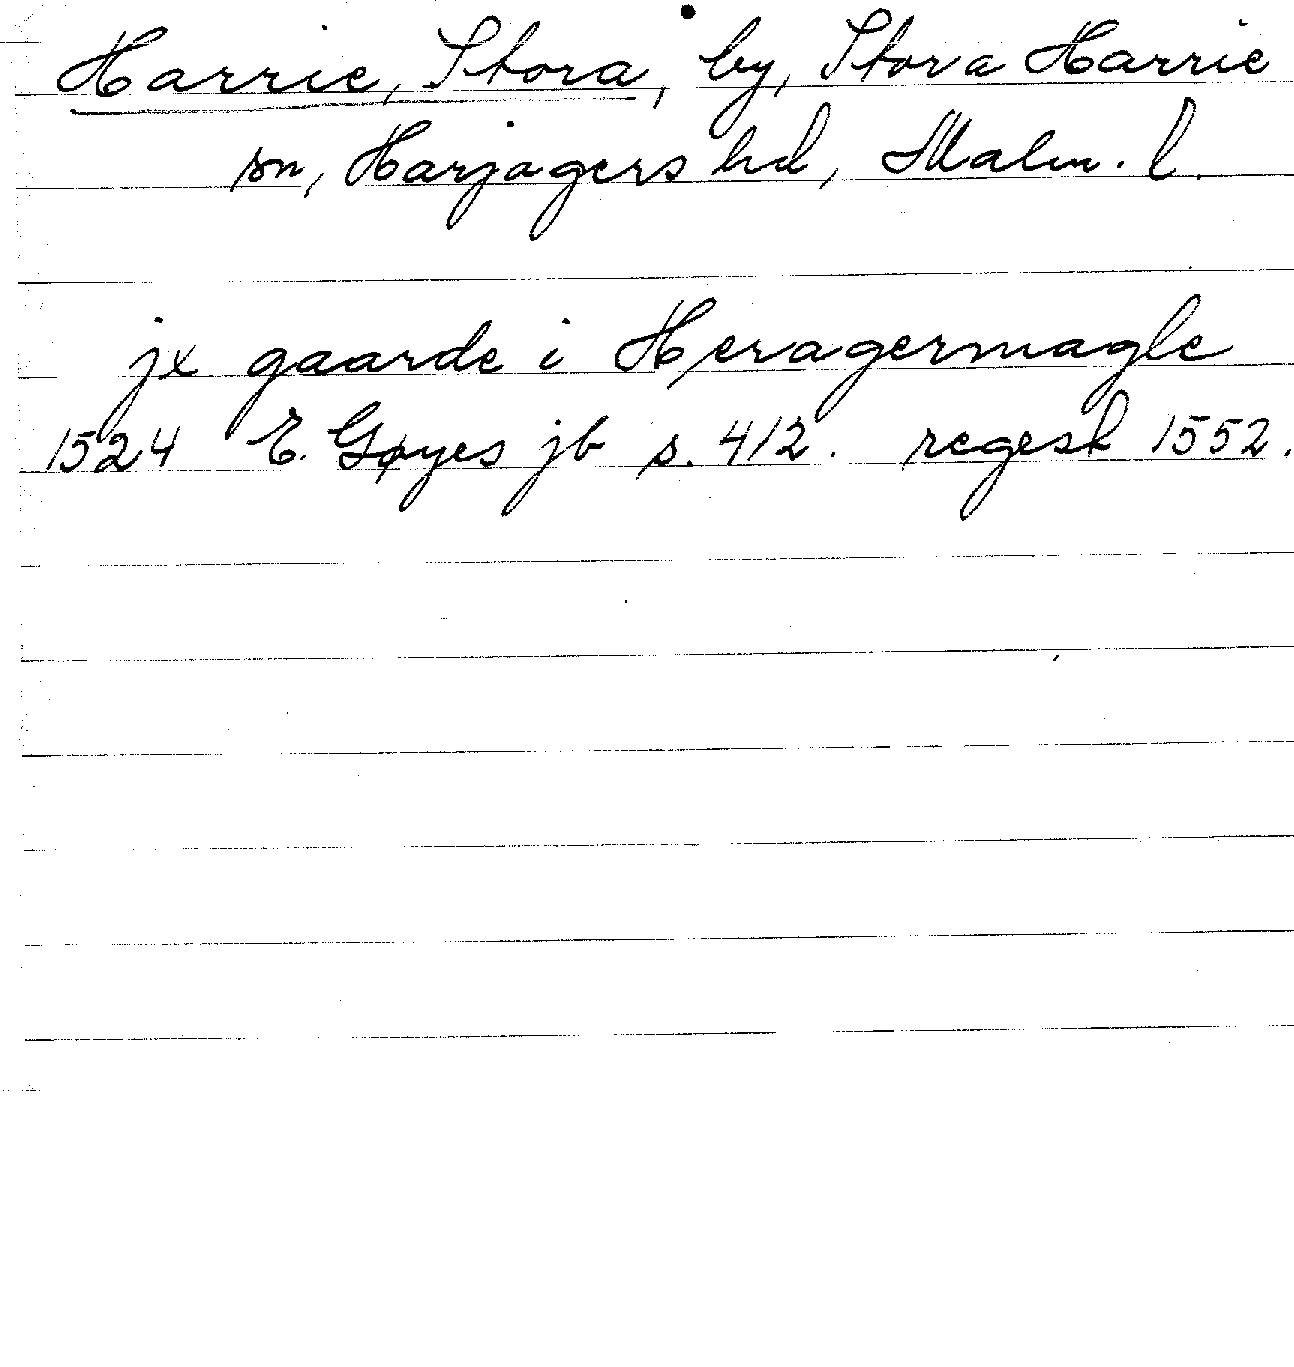 Harrie, Stora, by, Stora Harrie
sn, Harjagers hd, Malm. l.
jx gaarde i Heragermagle
1524 E. Gøyes jb s. 412. regest 1552.